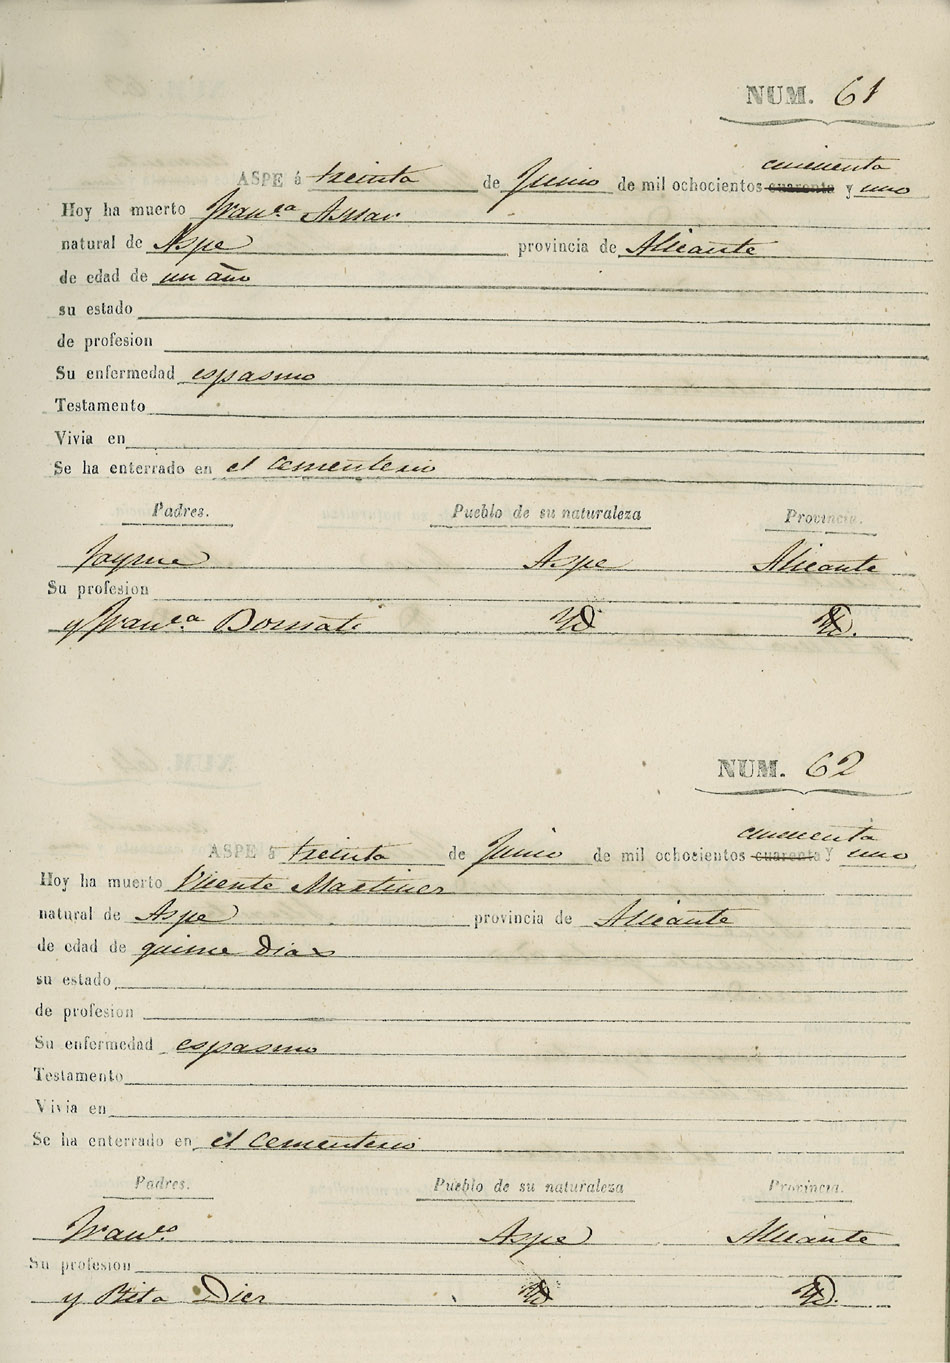 NUM. 61
cincuenta
ASPE á treinta de Junio de mil ochocientos cuarenta y uno
Hoy ha muerto Fran.ca Asnar
natural de Aspe provincia de Alicante
de edad de un año
su estado
de profesion
Su enfermedad espasmo
Testamento
Vivia en
Se ha enterrado en el cementerio
Padres. Pueblo de su naturaleza Provincia.
Jayme Aspe Alicante
Su profesion
y Fran.ca Id Id.
NUM. 62
cincuenta
ASPE á treinta de Junio de mil ochocientos cuarenta Y uno
Hoy ha muerto Vicente Martinez
natural de Aspe provincia de Alicante
de edad de quince dias
su estado
de profesion
Su enfermedad espasmo
Testamento
Vivia en
Se ha enterrado en el cementerio
Padres. Pueblo de su naturaleza Provincia.
Fran.co Aspe Alicante
Su profesion
y Rita Diez Id Id.